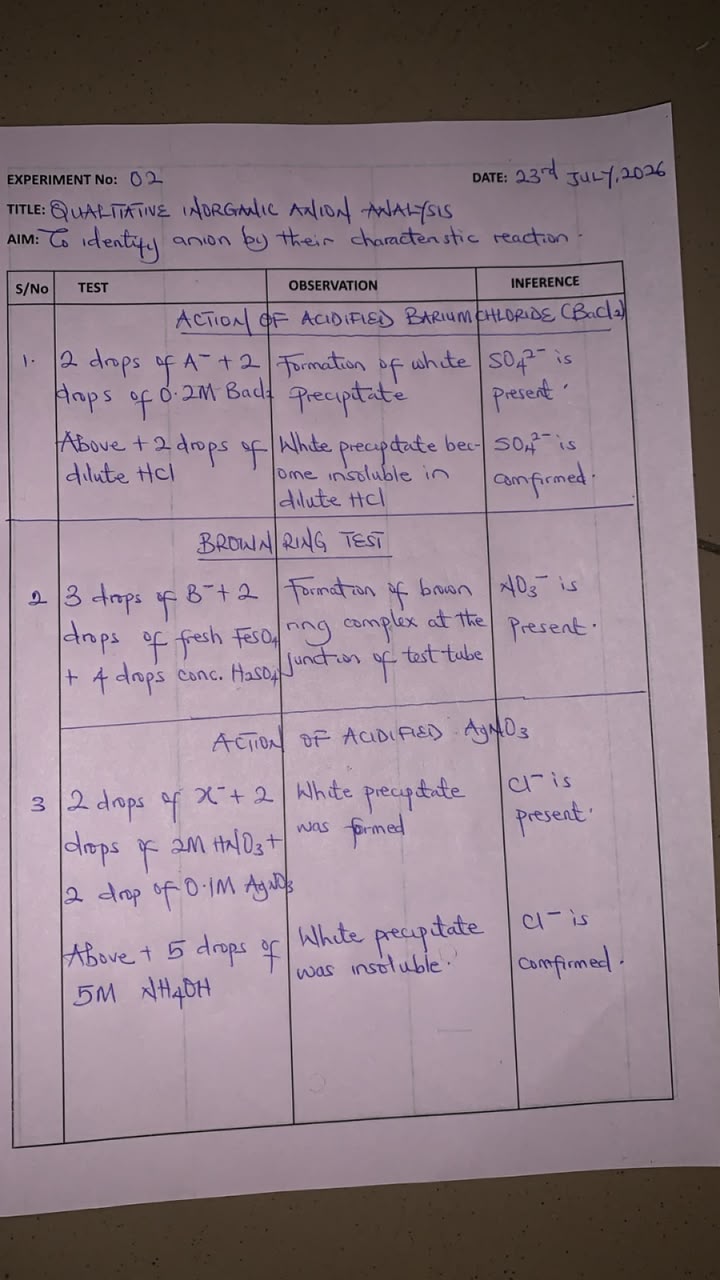 EXPERIMENT No: 02
DATE: 23rd JULY, 2026
TITLE: QUALITATIVE INORGANIC ANION ANALYSIS
AIM: To identify anion by their characteristic reaction.
S/No TEST OBSERVATION INFERENCE
ACTION OF ACIDIFIED BARIUM CHLORIDE (BaCl2)
1. 2 drops of A⁻ + 2
drops of 0.2M BaCl2
Formation of white
Precipitate
SO₄²⁻ is
present.
Above + 2 drops of
dilute HCl
White precipitate bec-
ome insoluble in
dilute HCl
SO₄²⁻ is
comfirmed.
BROWN RING TEST
2 3 drops of B⁻ + 2
drops of fresh FeSO4
+ 4 drops conc. H2SO4
Formation of brown
ring complex at the
junction of test tube
NO₃⁻ is
Present.
ACTION OF ACIDIFIED AgNO3
3 2 drops of X⁻ + 2
drops of 2M HNO3 +
2 drop of 0.1M AgNO3
White precipitate
was formed
Cl⁻ is
present.
Above + 5 drops of
5M NH4OH
White precipitate
was insoluble.
Cl⁻ is
comfirmed.